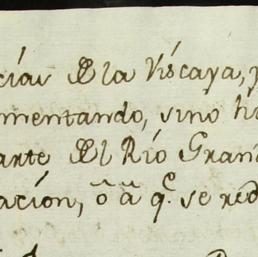 cias de la Viscaya,
mentando, sino
arte del Río Gran
ación, ô â q.^e se